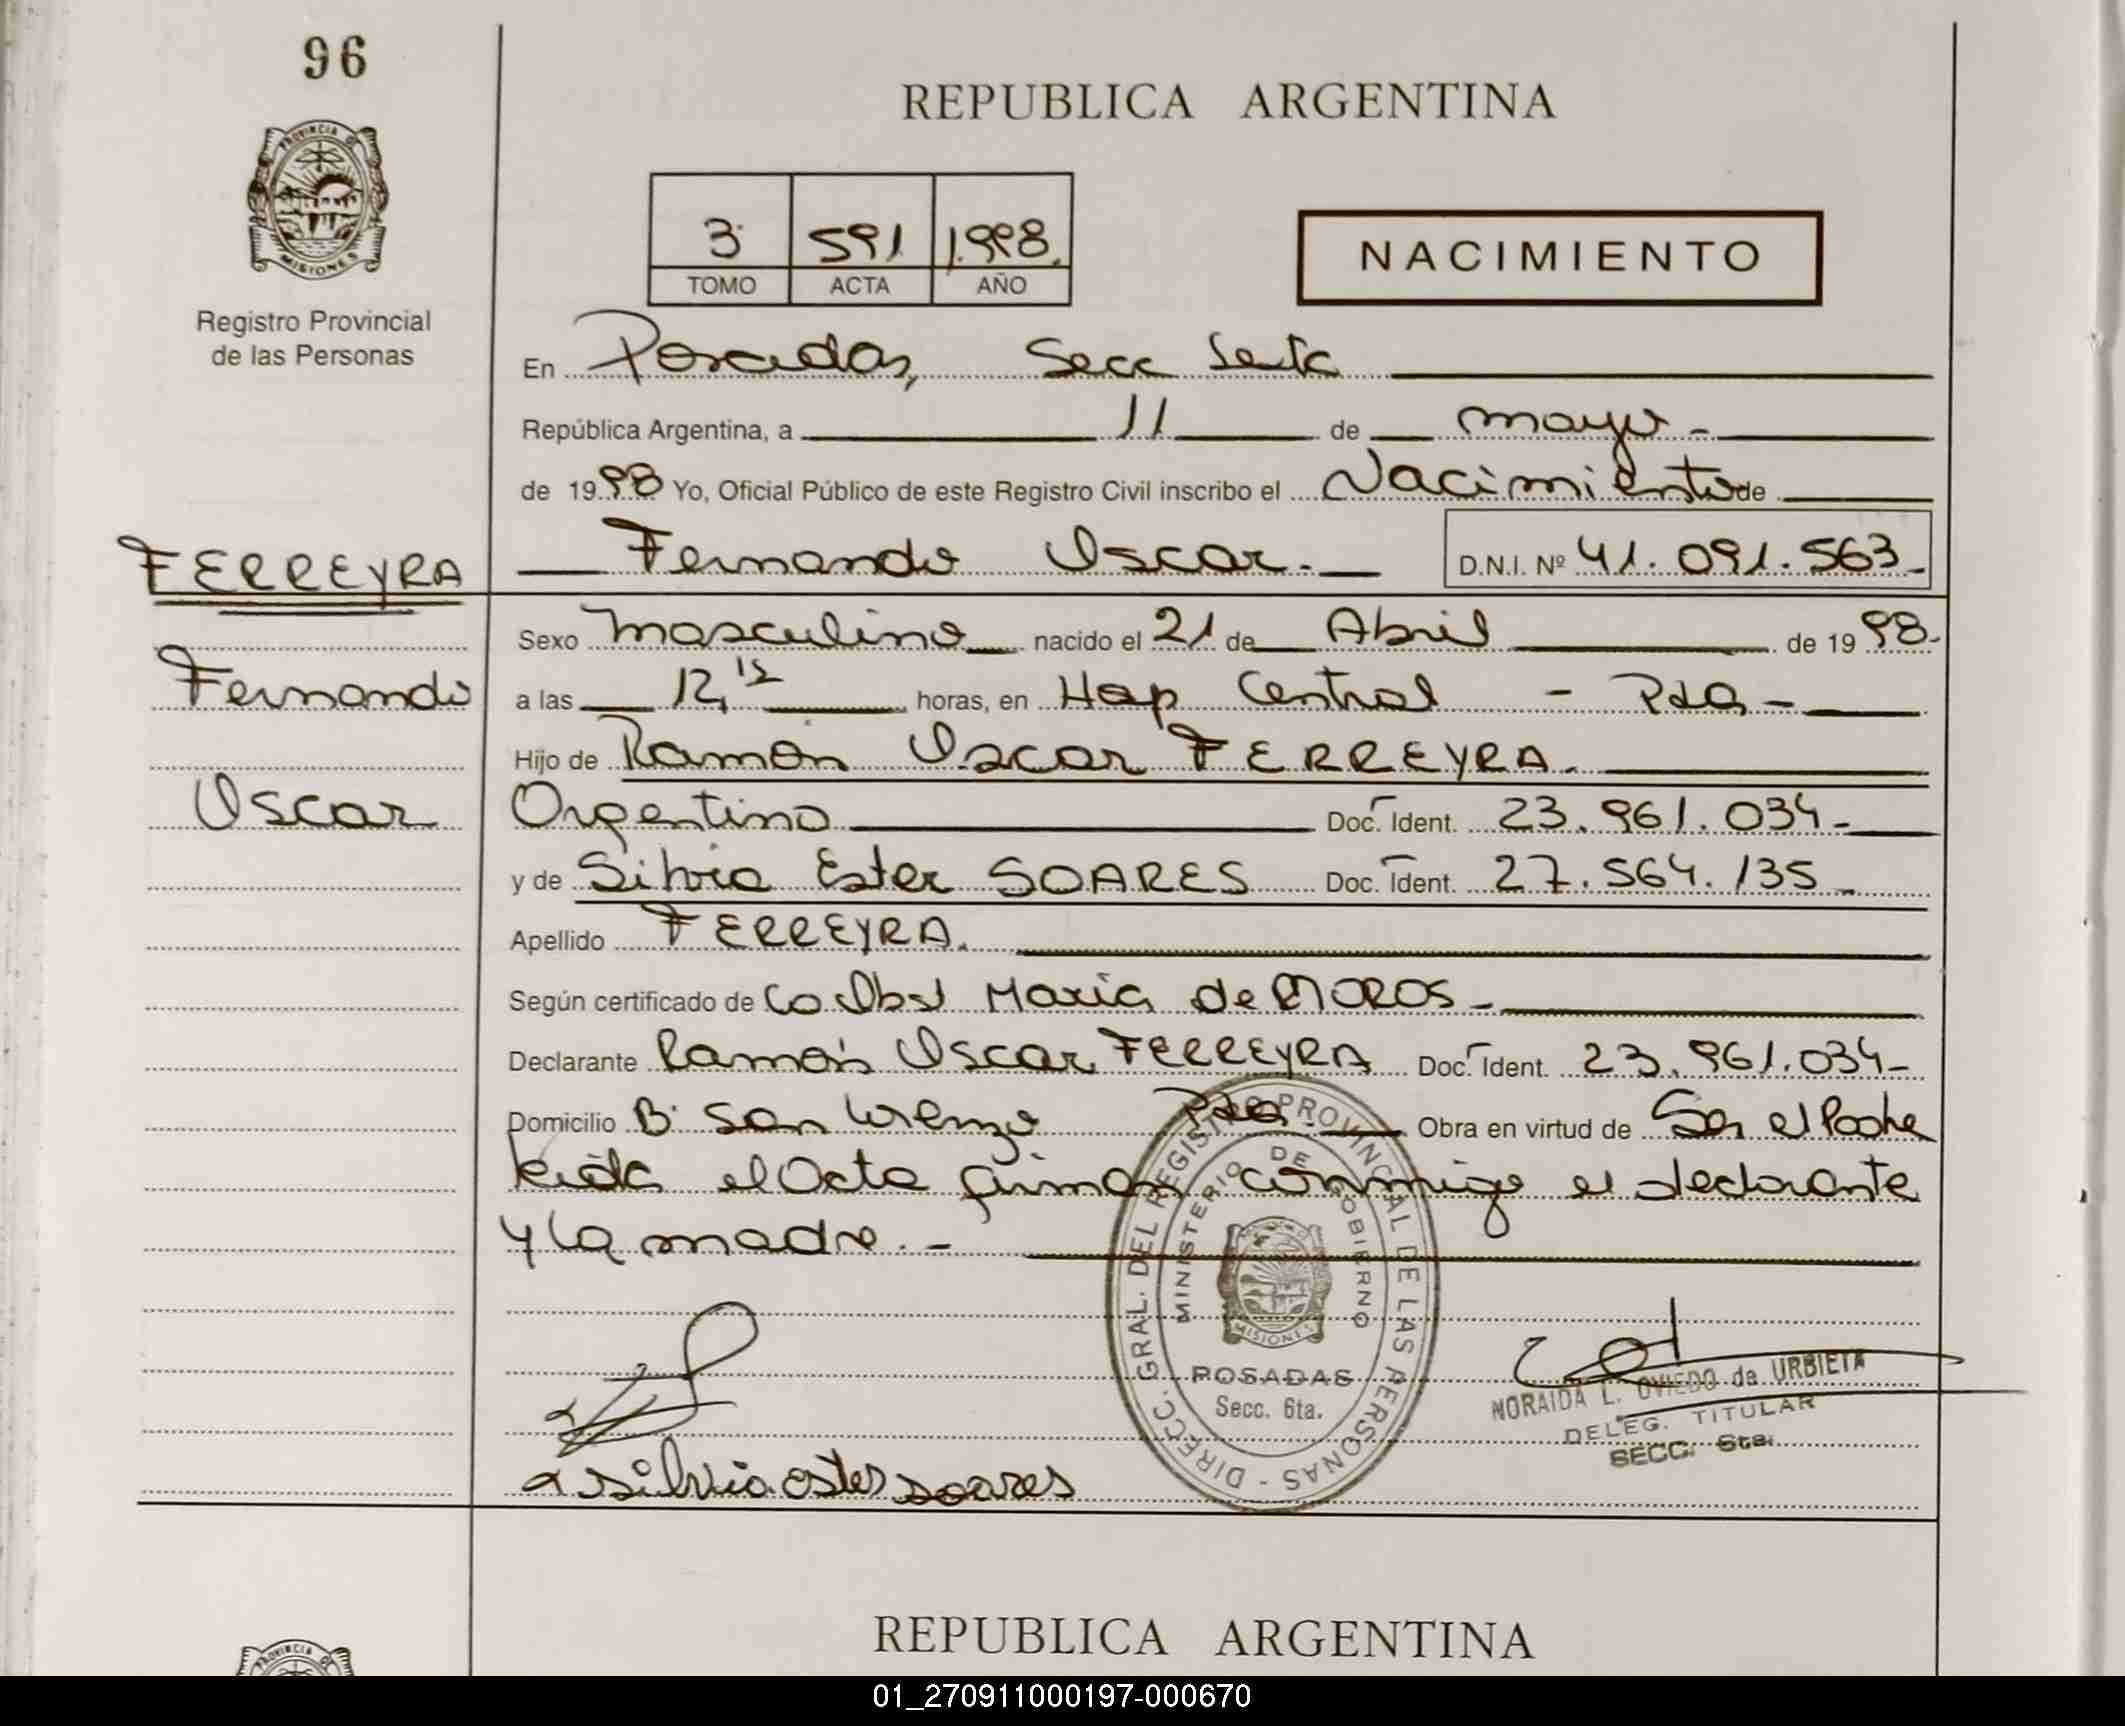 96
REPUBLICA ARGENTINA
PROVINCIA DE
MISIONES
Registro Provincial
de las Personas
3 591 1.998.
TOMO ACTA AÑO
NACIMIENTO
En Posadas, Secc Sexta
República Argentina, a 11 de mayo -
de 1998 Yo, Oficial Público de este Registro Civil inscribo el Nacimiento de
FERREYRA
Fernando
Oscar
Fernando Oscar. D.N.I. Nº 41.091.563-
Sexo masculino nacido el 21 de Abril de 1998-
a las 12,15 horas, en Hop Central - Pdas -
Hijo de Ramón Oscar FERREYRA.
Argentino Doc. Ident. 23.961.034-
y de Silvia Ester SOARES Doc. Ident. 27.564.135-
Apellido FERREYRA.
Según certificado de la Obst Maria de MOROS-
Declarante Ramón Oscar FERREYRA Doc. Ident. 23.961.034-
Domicilio Bº San Lorenzo Pdas. Obra en virtud de Ser el Padre
leida el Acta firman conmigo el declarante
y la madre. -
DIRECC. GRAL. DEL REGISTRO PROVINCIAL DE LAS PERSONAS -
MINISTERIO DE GOBIERNO
MISIONES
POSADAS
Secc. 6ta.
NORAIDA L. OVIEDO de URBIETA
DELEG. TITULAR
SECC. 6ta.
silvia ester soares
REPUBLICA ARGENTINA
PROVINCIA DE
01_270911000197-000670